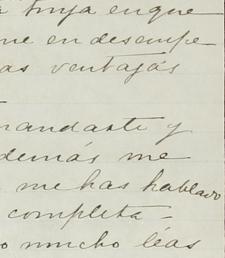 tuya en que
me en desempe
as ventajas
mandaste y
demás me
me has hablado
completa -
o mucho léas